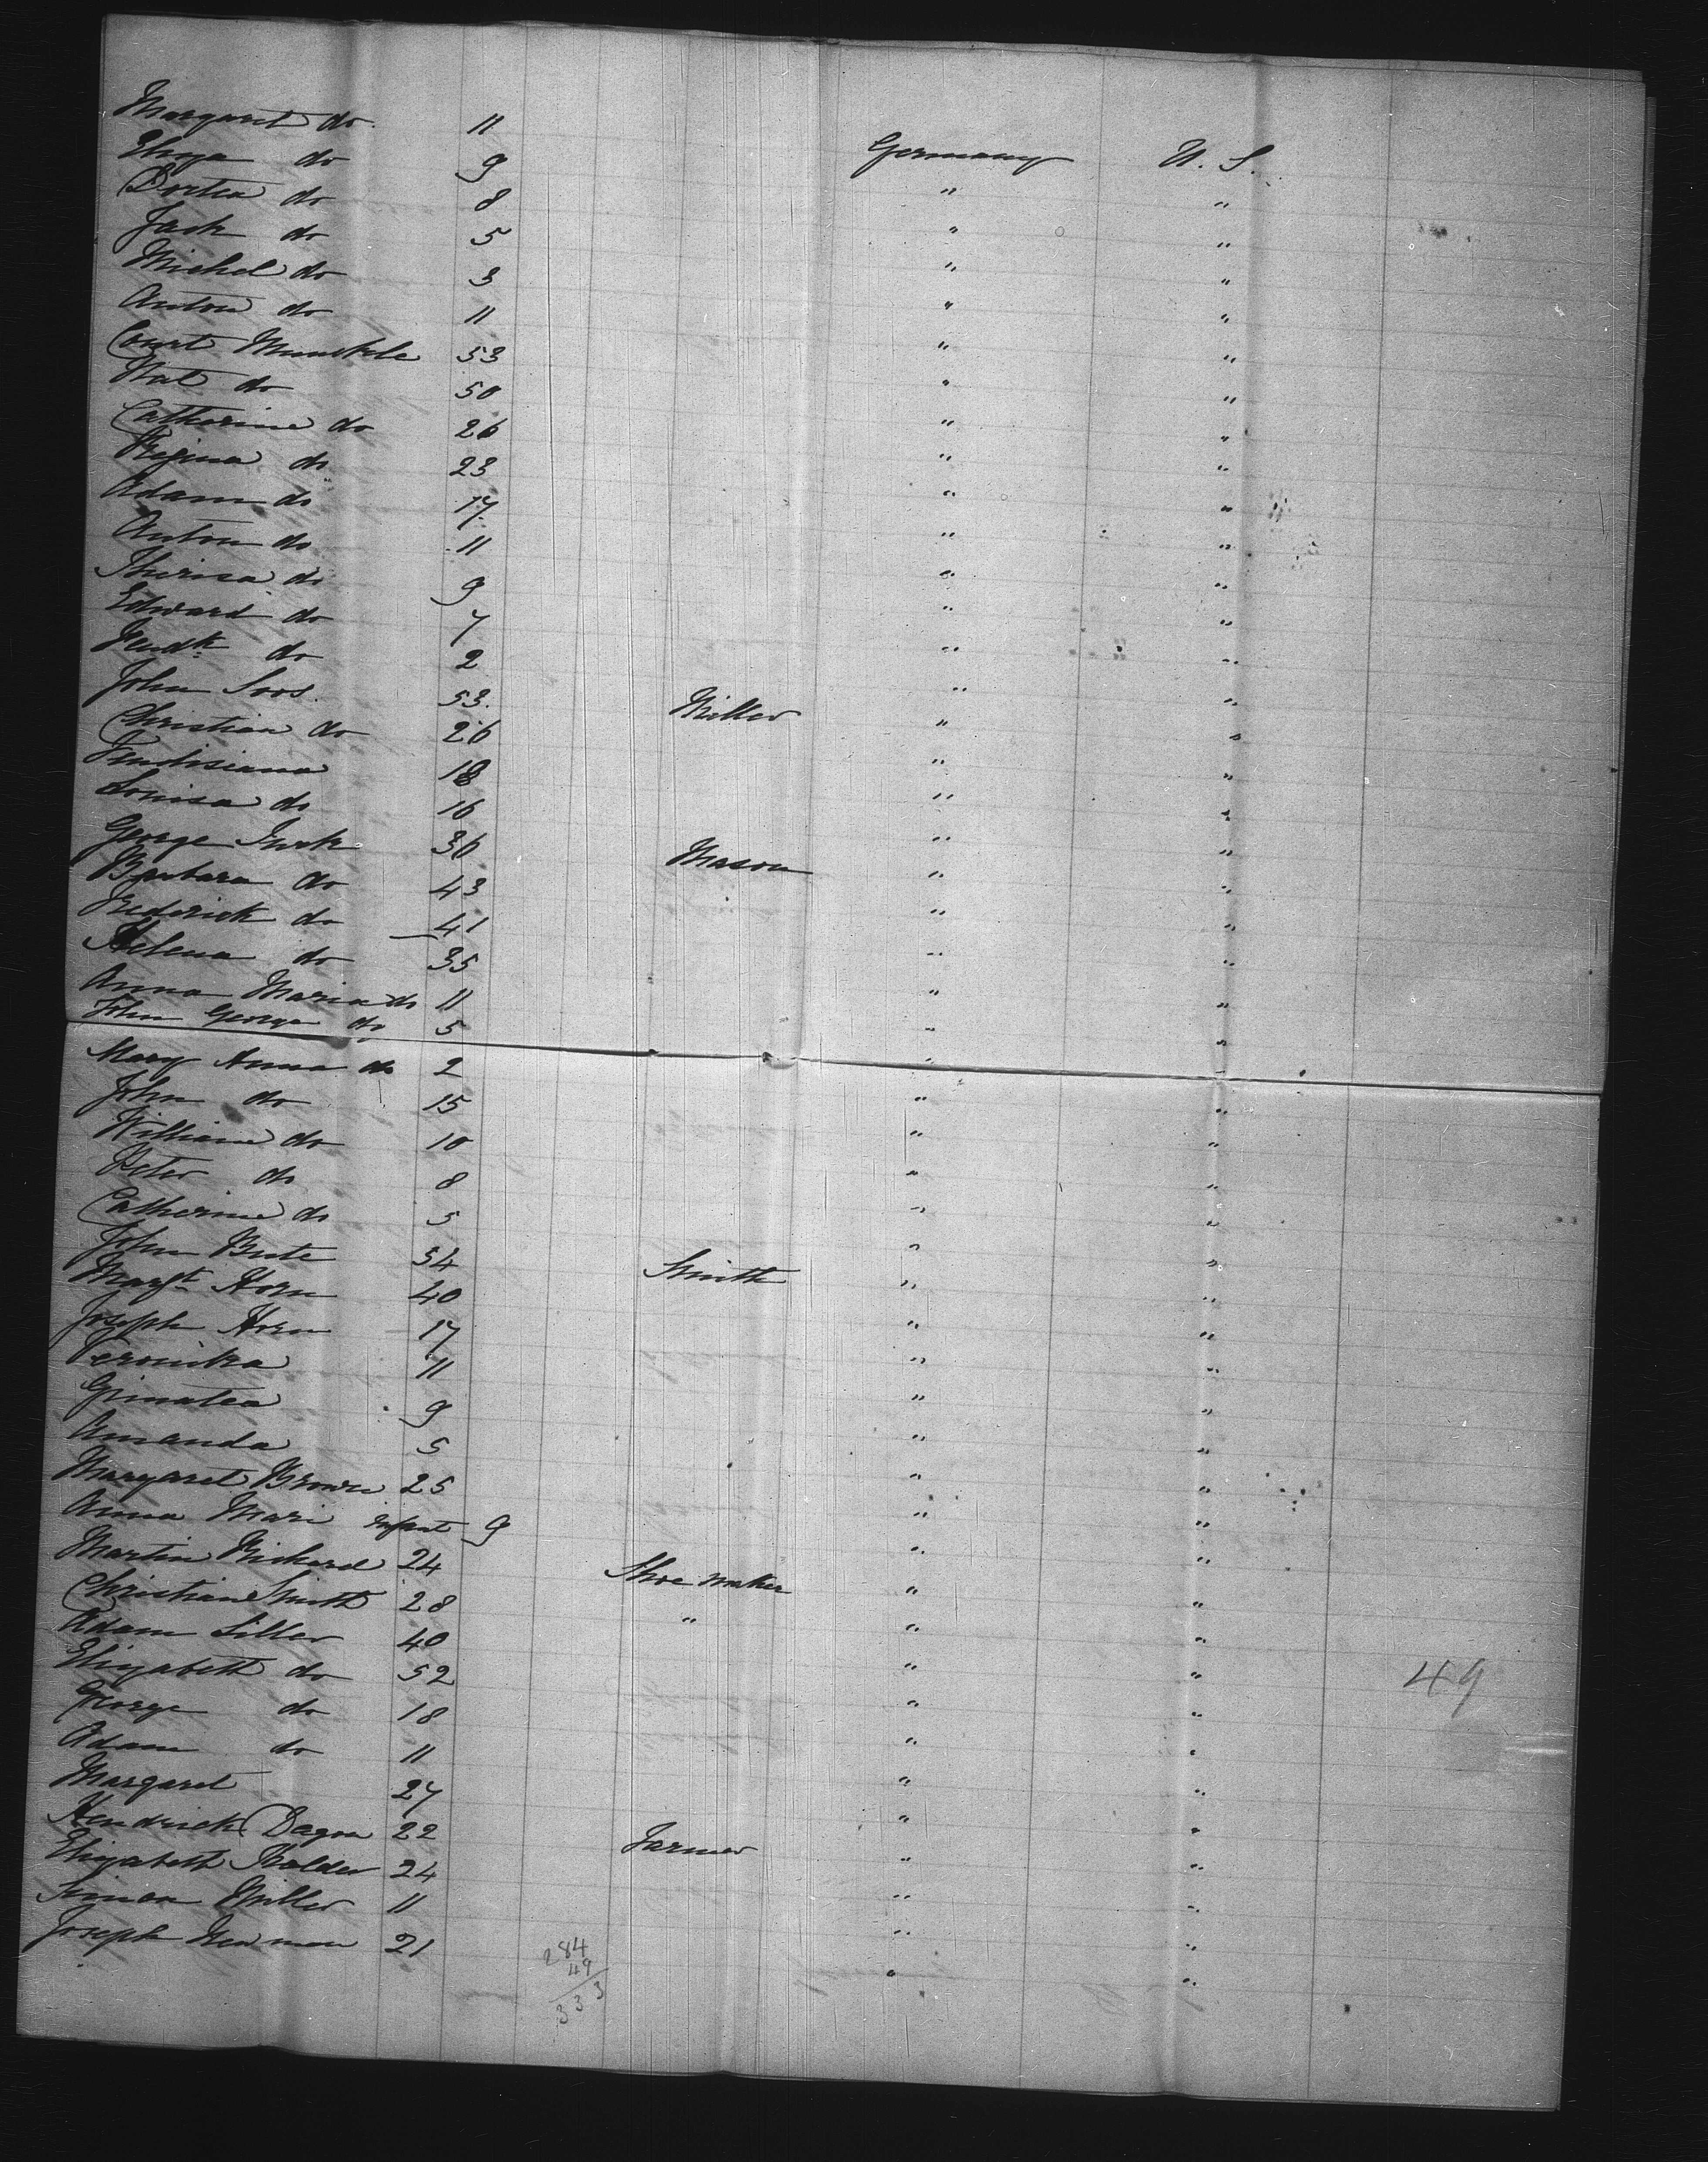 Margaret do. 11 Germany U. S.
Eliza do 9 " "
Dortea do 8 " "
Jack do 5 " "
Michel do 3 " "
Anton do 11 " "
Court Munckle 53 " "
Nat do 50 " "
Catherine do 26 " "
Regina do 23 " "
Adam do 17 " "
Anton do 11 " "
Theresa do 9 " "
Edward do 7 " "
do 2 " "
John Soos. 53. Miller " "
Christian do 26 " "
18 " "
Louisa do 16 " "
George 36 Mason " "
Barbara do 43 " "
Frederick do 41 " "
Helena do 35 " "
Anna Maria do 11 " "
John George do 5 " "
Mary Anna do 2 " "
John do 15 " "
William do 10 " "
Peter do 8 " "
Catherine do 5 " "
John Bute 54 Smith " "
Margt Horn 40 " "
Joseph Horn 17 " "
Veronika 11 " "
9 " "
Amanda 5 " "
Margaret Brown 25 " "
Anna Mari Infant 9 " "
Martin Richard 24 Shoe maker " "
Christian Smith 28 " " "
Adam Siller 40 " "
Elizabeth do 52 " " 49
George do 18 " "
Adam do 11 " "
Margaret 27 " "
Hendrick Dagon 22 Farmer " "
Elizabeth 24 " "
Simon Miller 11 " "
Joseph Newman 21 " "
284
49
333